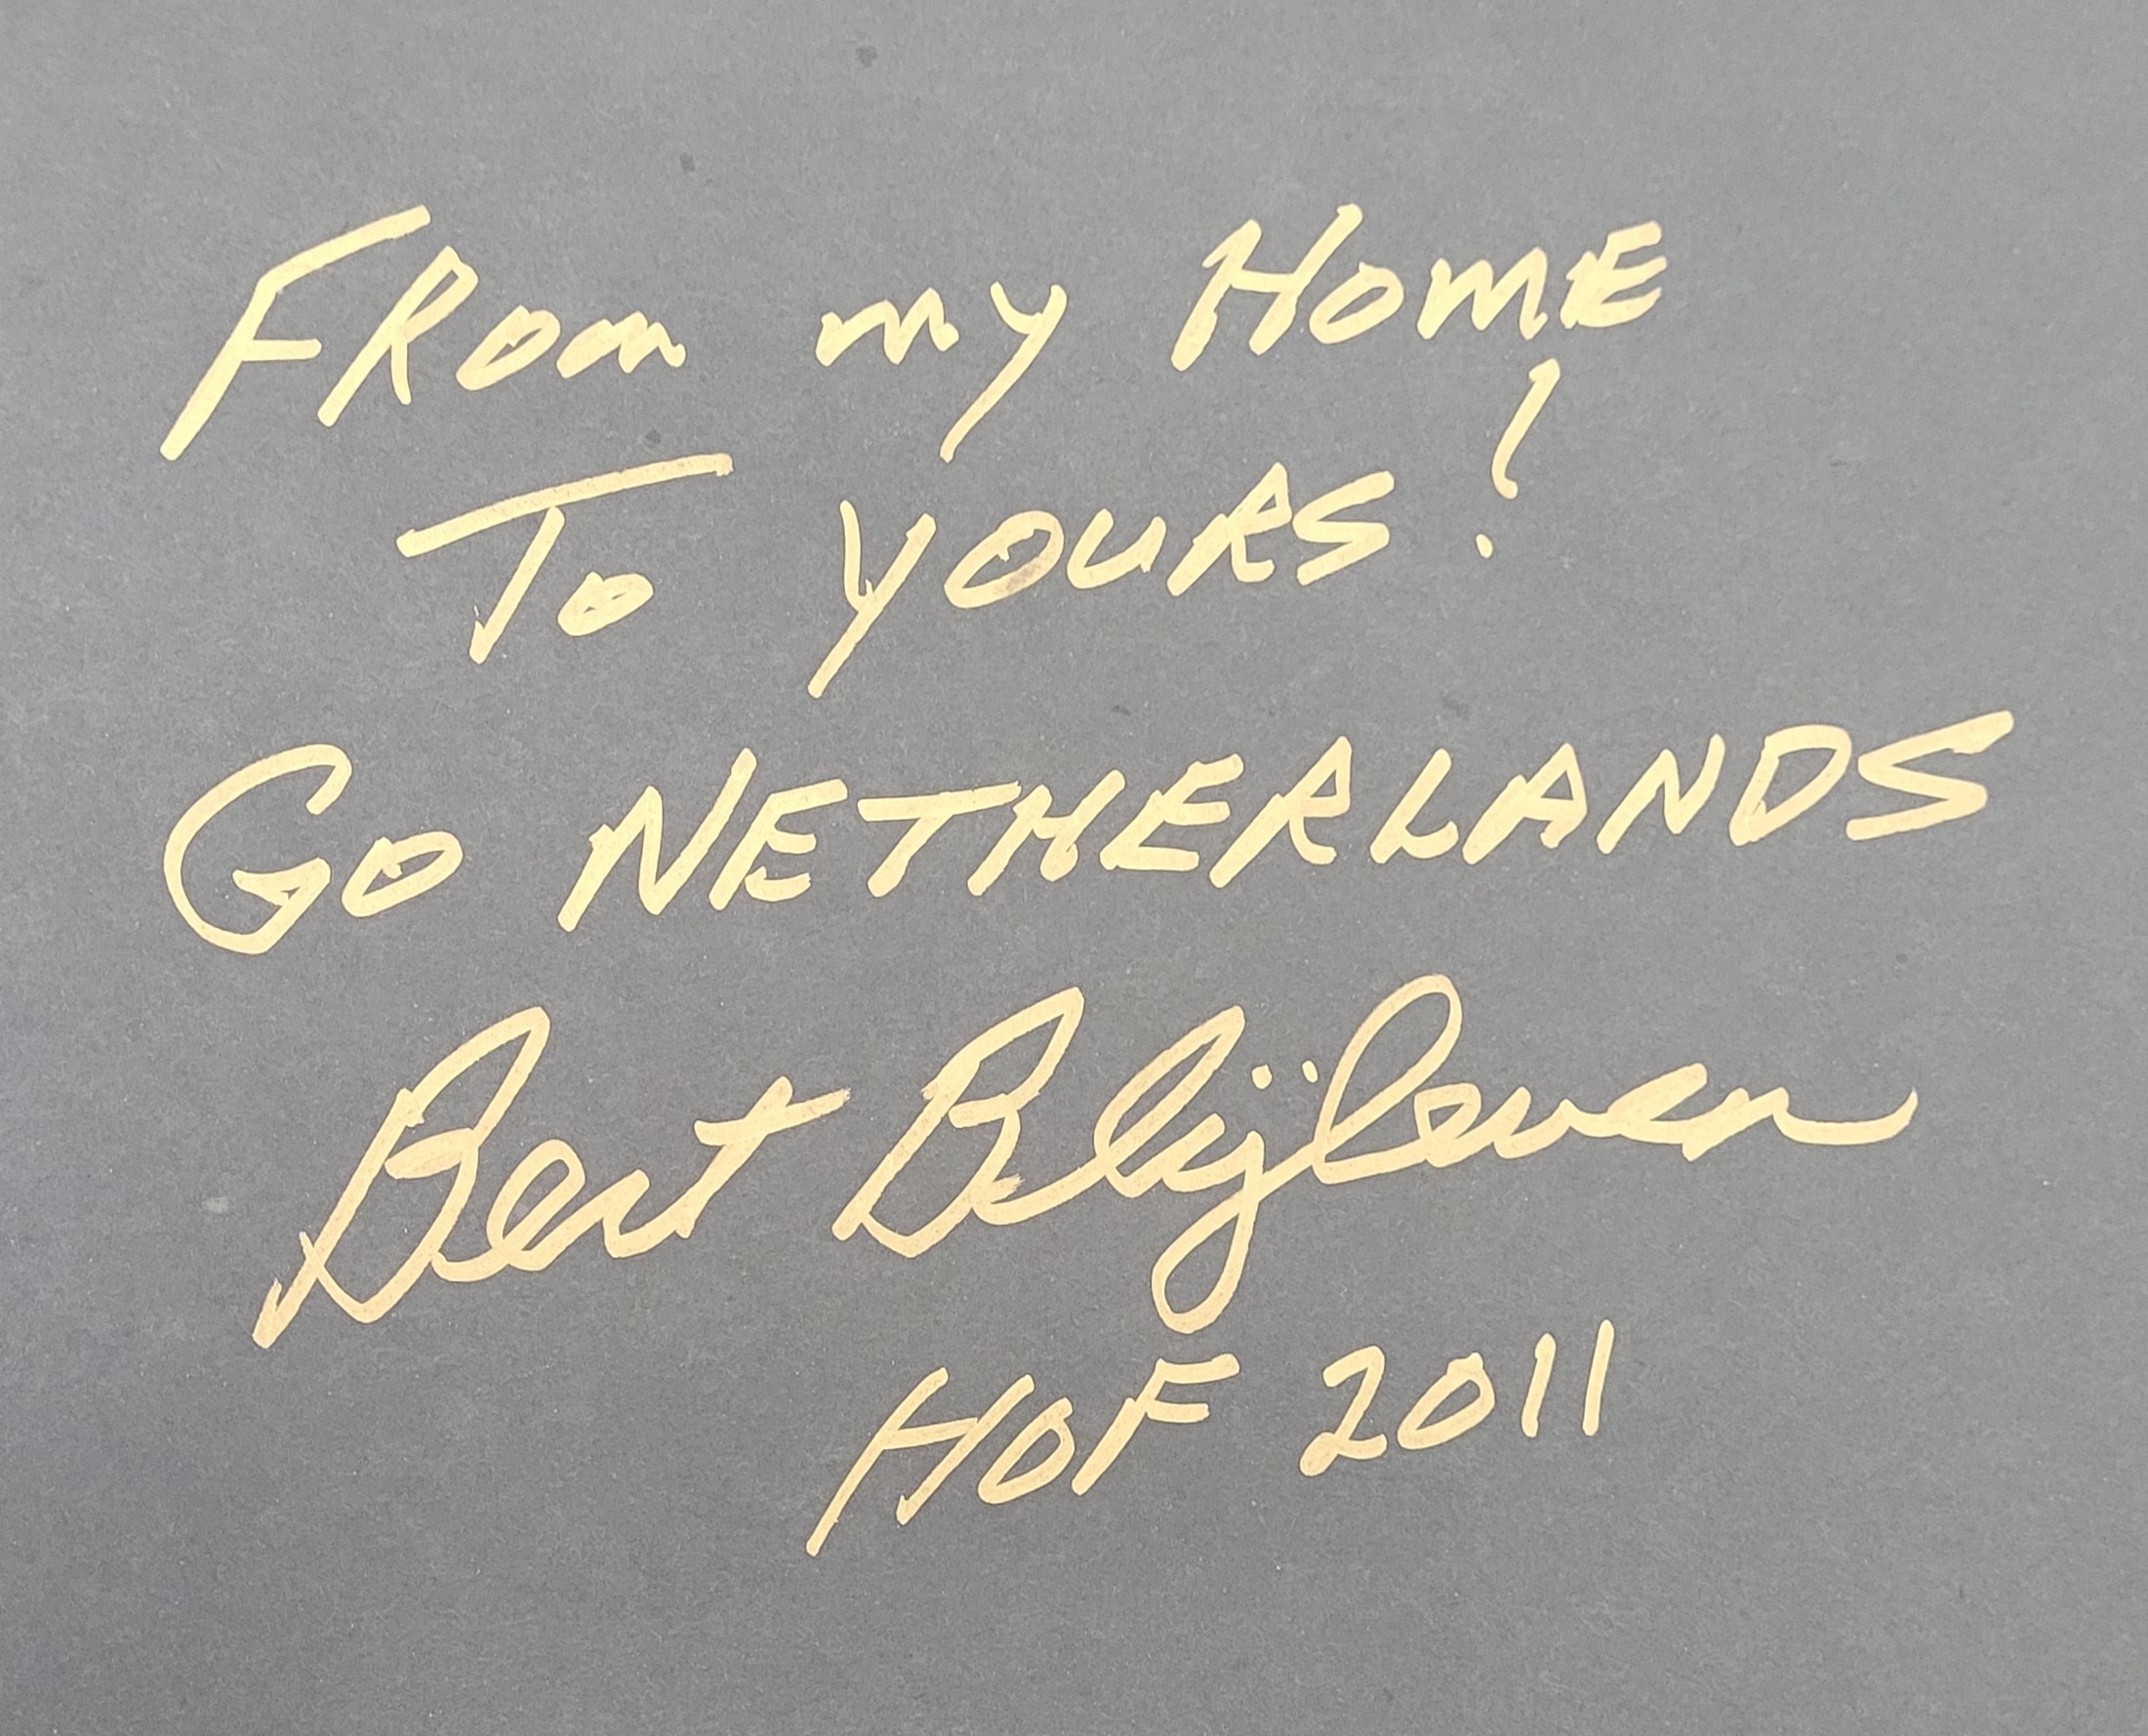 FRom my HomE
To YOURS!
GO NETHERLANDS
Bert Blyleven
HOF 2011